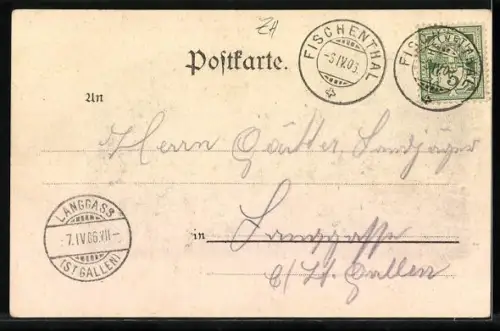 ZH
Postkarte.
FISCHENTHAL
FISCHENTHAL
An
Herrn Landjäger
LANGGASS
-7.IV.06.VII-
(ST.GALLEN)
in Langgasse
b/St. Gallen